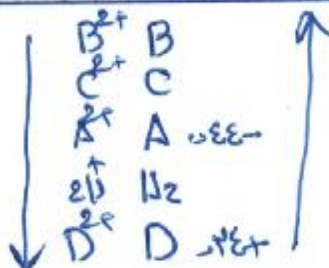 B²⁺ B
C²⁺ C
A²⁺ A ٠,٤٤−
2H⁺ H₂
D²⁺ D ٠,٣٤+